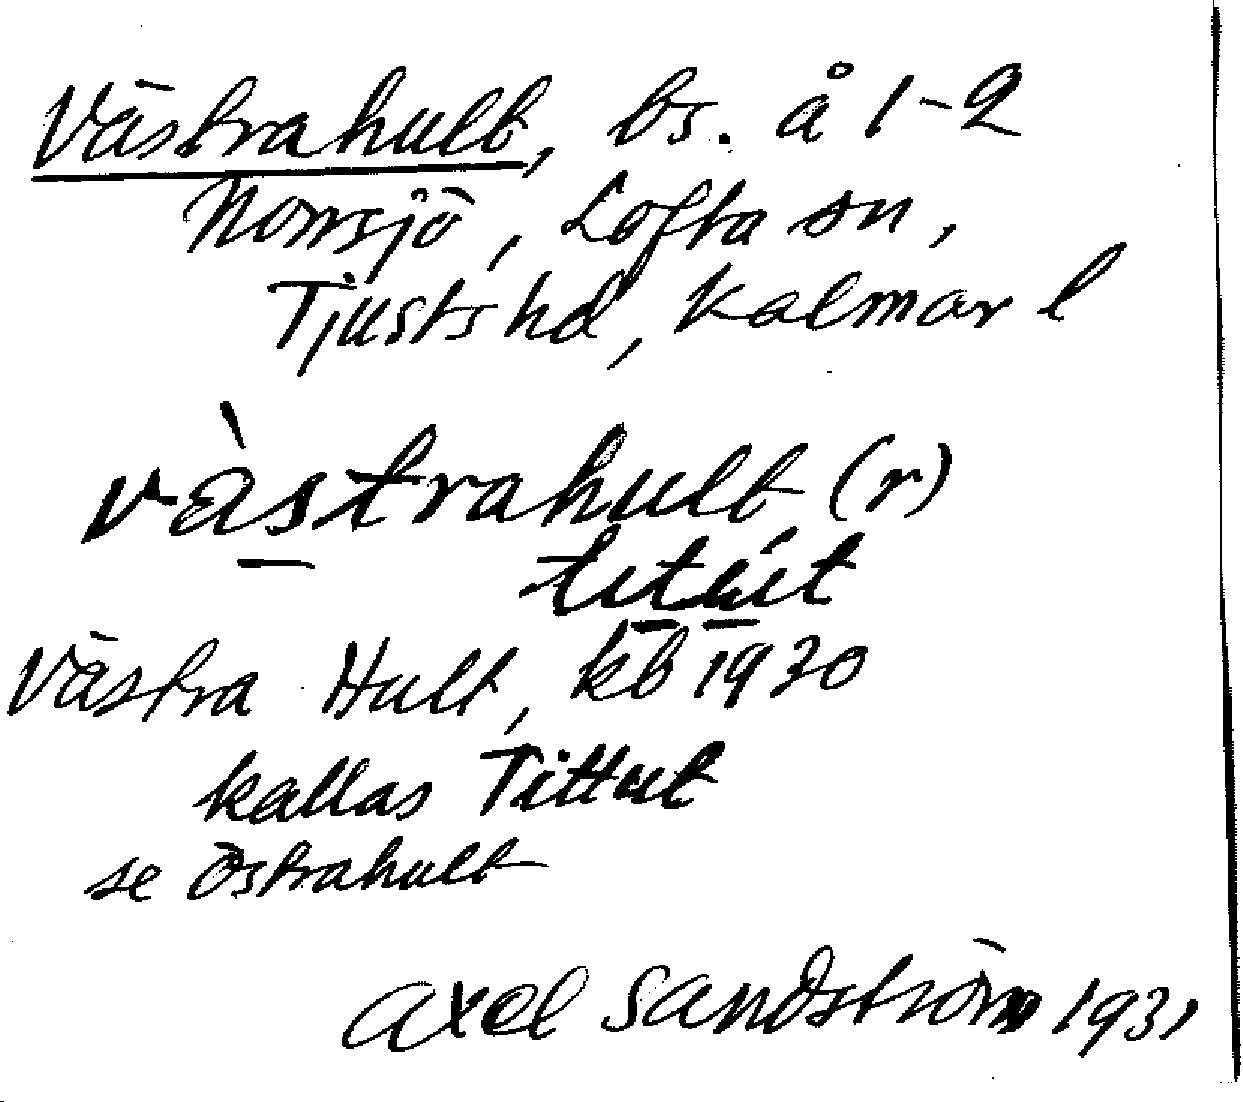 Västrahult, bs. å 1-2
Norrsjö, Lofta sn,
Tjusts hd, Kalmar l
västrahult (r)
titút
Västra Hult, kb 1930
kallas Tittut
se Östrahult
Axel Sandström 1931